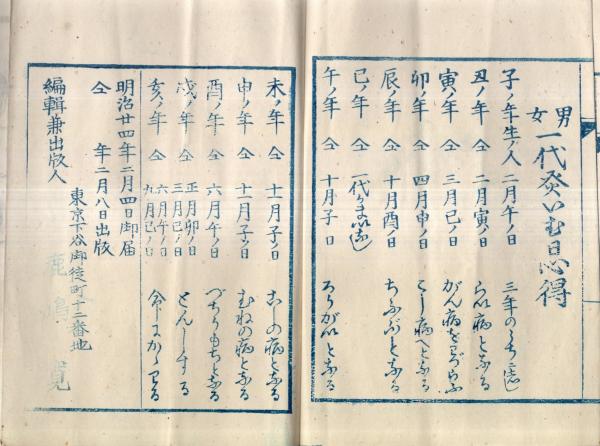 男
女
一代灸いむ日心得
子ノ年生ノ人 二月午ノ日 三年のうちに
丑ノ年 仝 二月寅ノ日 らい病となる
寅ノ年 仝 三月巳ノ日 がん病をわづらふ
卯ノ年 仝 四月申ノ日 こし病へとなる
辰ノ年 仝 十月酉ノ日 ちうぶとなる
巳ノ年 仝
午ノ年 仝 十月子ノ日 ろうがいとなる
未ノ年 仝 十一月子ノ日 こしの病となる
申ノ年 仝 十一月子ノ日 むねの病となる
酉ノ年 仝 六月午ノ日 づつうもちとなる
戌ノ年 仝 正月卯ノ日 三月巳ノ日 とんしする
亥ノ年 仝 六月午ノ日 九月巳ノ日 命にかゝわる
明治廿四年二月四日御届
仝 年二月八日出版
東京下谷御徒町十二番地
編輯兼出版人 鹿嶋 寛